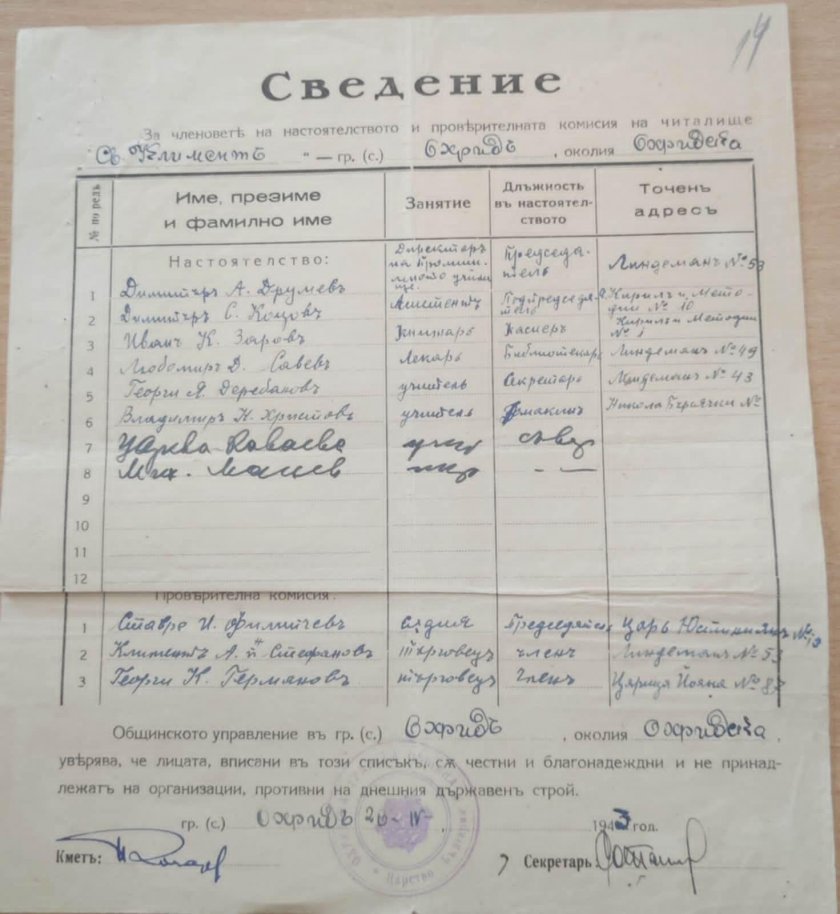 14
Сведение
За членоветѣ на настоятелството и провѣрителната комисия на читалище
„Св. Климентъ" — гр. (с.) Охридъ, околия Охридска
№ по редъ
Име, презиме и фамилно име
Занятие
Длъжность въ настоятелството
Точенъ адресъ
Настоятелство:
1 Димитъръ А. Друмевъ Директоръ на Председатель Линдеманъ № 53
2 Димитъръ С. Коцовъ Асистентъ Подпредседатель Кирилъ и Методии № 10
3 Иванъ К. Заровъ книжарь Касиеръ Кирилъ и Методии № 1
4 Любомиръ Д. Савевъ Лекарь Библиотекарь Линдеманъ № 49
5 Георги А. Деребановъ учитель Секретарь Линдеманъ № 43
6 Владимиръ Н. Христовъ учитель Домакинъ Никола №
7
8
9
10
11
12
Провѣрителна комисия:
1 Ставре И. Филипчевъ съдия Председатель Царь Юстиниянъ №
2 Климентъ А. Стефановъ търговецъ членъ Линдеманъ № 53
3 Георги К. Германовъ търговецъ Членъ Царица Иоана № 87
Общинското управление въ гр. (с.) Охридъ, околия Охридска,
увѣрява, че лицата, вписани въ този списъкъ, сѫ честни и благонадеждни и не принад-
лежатъ на организации, противни на днешния държавенъ строй.
гр. (с.) Охридъ 20-IV- 1943 год.
Кметъ: Секретарь
Царство България